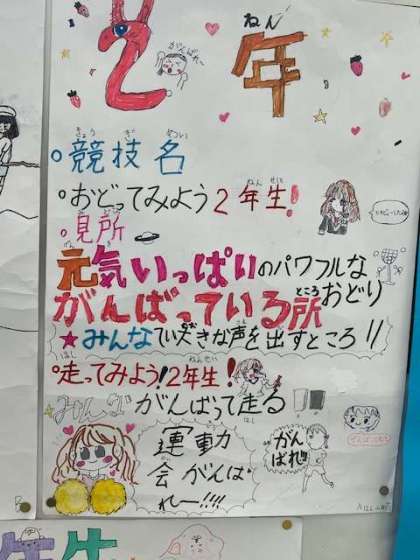 2年
ねん
がんばれ〜
競技名
きょうぎ
・おどってみよう2年生!
ねんせい
・見所
元気いっぱいのパワフルな
がんばっている所おどり
ところ
★みんなで大きな声を出すところ!!
・走ってみよう!2年生!
はし
ねんせい
みんながんばって走る
はし
運動
会がんば
れー!!!!
がん
ばれ!!